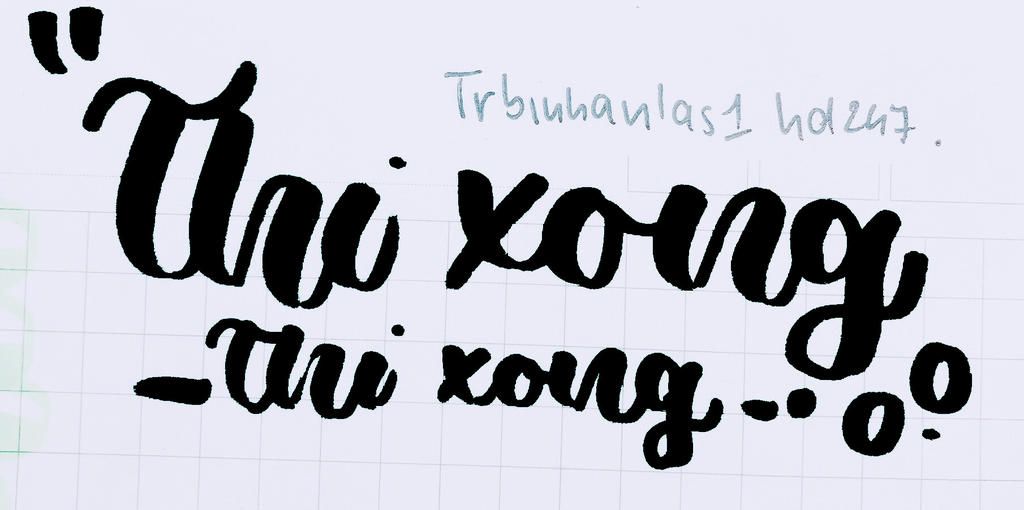 Trbinhanlas1 hd247.
"Thi xong
-Thi xong